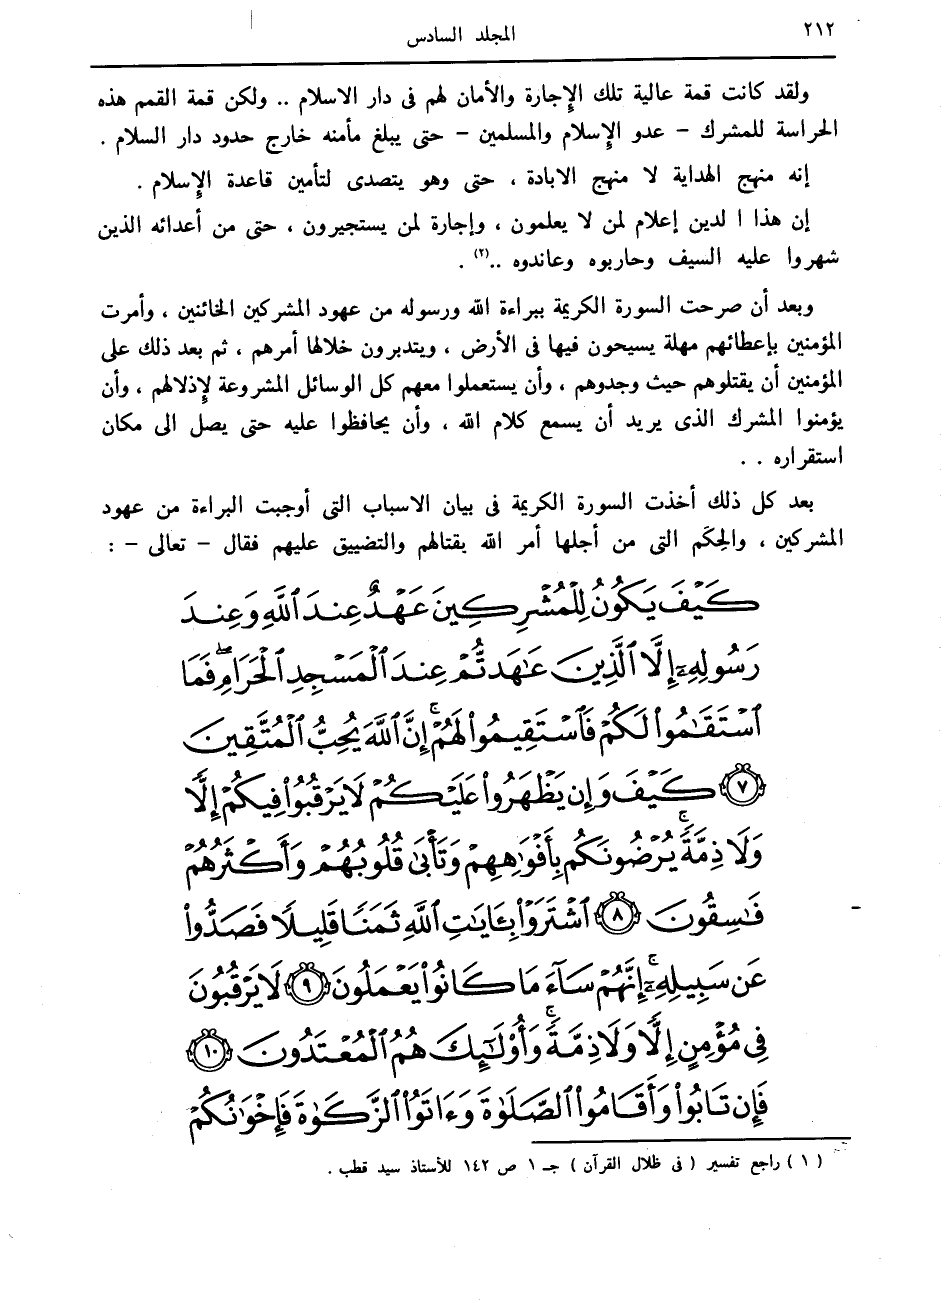 ٢١٢
المجلد السادس
ولقد كانت قمة عالية تلك الإجارة والأمان لهم فى دار الاسلام .. ولكن قمة القمم هذه
الحراسة للمشرك - عدو الإسلام والمسلمين - حتى يبلغ مأمنه خارج حدود دار السلام .
إنه منهج الهداية لا منهج الابادة ، حتى وهو يتصدى لتأمين قاعدة الإسلام .
إن هذا ا لدين إعلام لمن لا يعلمون ، وإجارة لمن يستجيرون ، حتى من أعدائه الذين
شهروا عليه السيف وحاربوه وعاندوه ..(٢) .
وبعد أن صرحت السورة الكريمة ببراءة الله ورسوله من عهود المشركين الخائنين ، وأمرت
المؤمنين بإعطائهم مهلة يسيحون فيها فى الأرض ، ويتدبرون خلالها أمرهم ، ثم بعد ذلك على
المؤمنين أن يقتلوهم حيث وجدوهم ، وأن يستعملوا معهم كل الوسائل المشروعة لإذلالهم ، وأن
يؤمنوا المشرك الذى يريد أن يسمع كلام الله ، وأن يحافظوا عليه حتى يصل الى مكان
استقراره . .
بعد كل ذلك أخذت السورة الكريمة فى بيان الاسباب التى أوجبت البراءة من عهود
المشركين ، والحِكَم التى من أجلها أمر الله بقتالهم والتضييق عليهم فقال - تعالى - :
كَيْفَ يَكُونُ لِلْمُشْرِكِينَ عَهْدٌ عِندَ ٱللَّهِ وَعِندَ
رَسُولِهِۦٓ إِلَّا ٱلَّذِينَ عَٰهَدتُّمْ عِندَ ٱلْمَسْجِدِ ٱلْحَرَامِ ۖ فَمَا
ٱسْتَقَٰمُوا۟ لَكُمْ فَٱسْتَقِيمُوا۟ لَهُمْ ۚ إِنَّ ٱللَّهَ يُحِبُّ ٱلْمُتَّقِينَ
٧ كَيْفَ وَإِن يَظْهَرُوا۟ عَلَيْكُمْ لَا يَرْقُبُوا۟ فِيكُمْ إِلًّا
وَلَا ذِمَّةً ۚ يُرْضُونَكُم بِأَفْوَٰهِهِمْ وَتَأْبَىٰ قُلُوبُهُمْ وَأَكْثَرُهُمْ
فَٰسِقُونَ ٨ ٱشْتَرَوْا۟ بِـَٔايَٰتِ ٱللَّهِ ثَمَنًا قَلِيلًا فَصَدُّوا۟
عَن سَبِيلِهِۦٓ ۚ إِنَّهُمْ سَآءَ مَا كَانُوا۟ يَعْمَلُونَ ٩ لَا يَرْقُبُونَ
فِى مُؤْمِنٍ إِلًّا وَلَا ذِمَّةً ۚ وَأُو۟لَٰٓئِكَ هُمُ ٱلْمُعْتَدُونَ ١٠
فَإِن تَابُوا۟ وَأَقَامُوا۟ ٱلصَّلَوٰةَ وَءَاتَوُا۟ ٱلزَّكَوٰةَ فَإِخْوَٰنُكُمْ
( ١ ) راجع تفسير ( فى ظلال القرآن ) جـ ١ ص ١٤٢ للأستاذ سيد قطب .